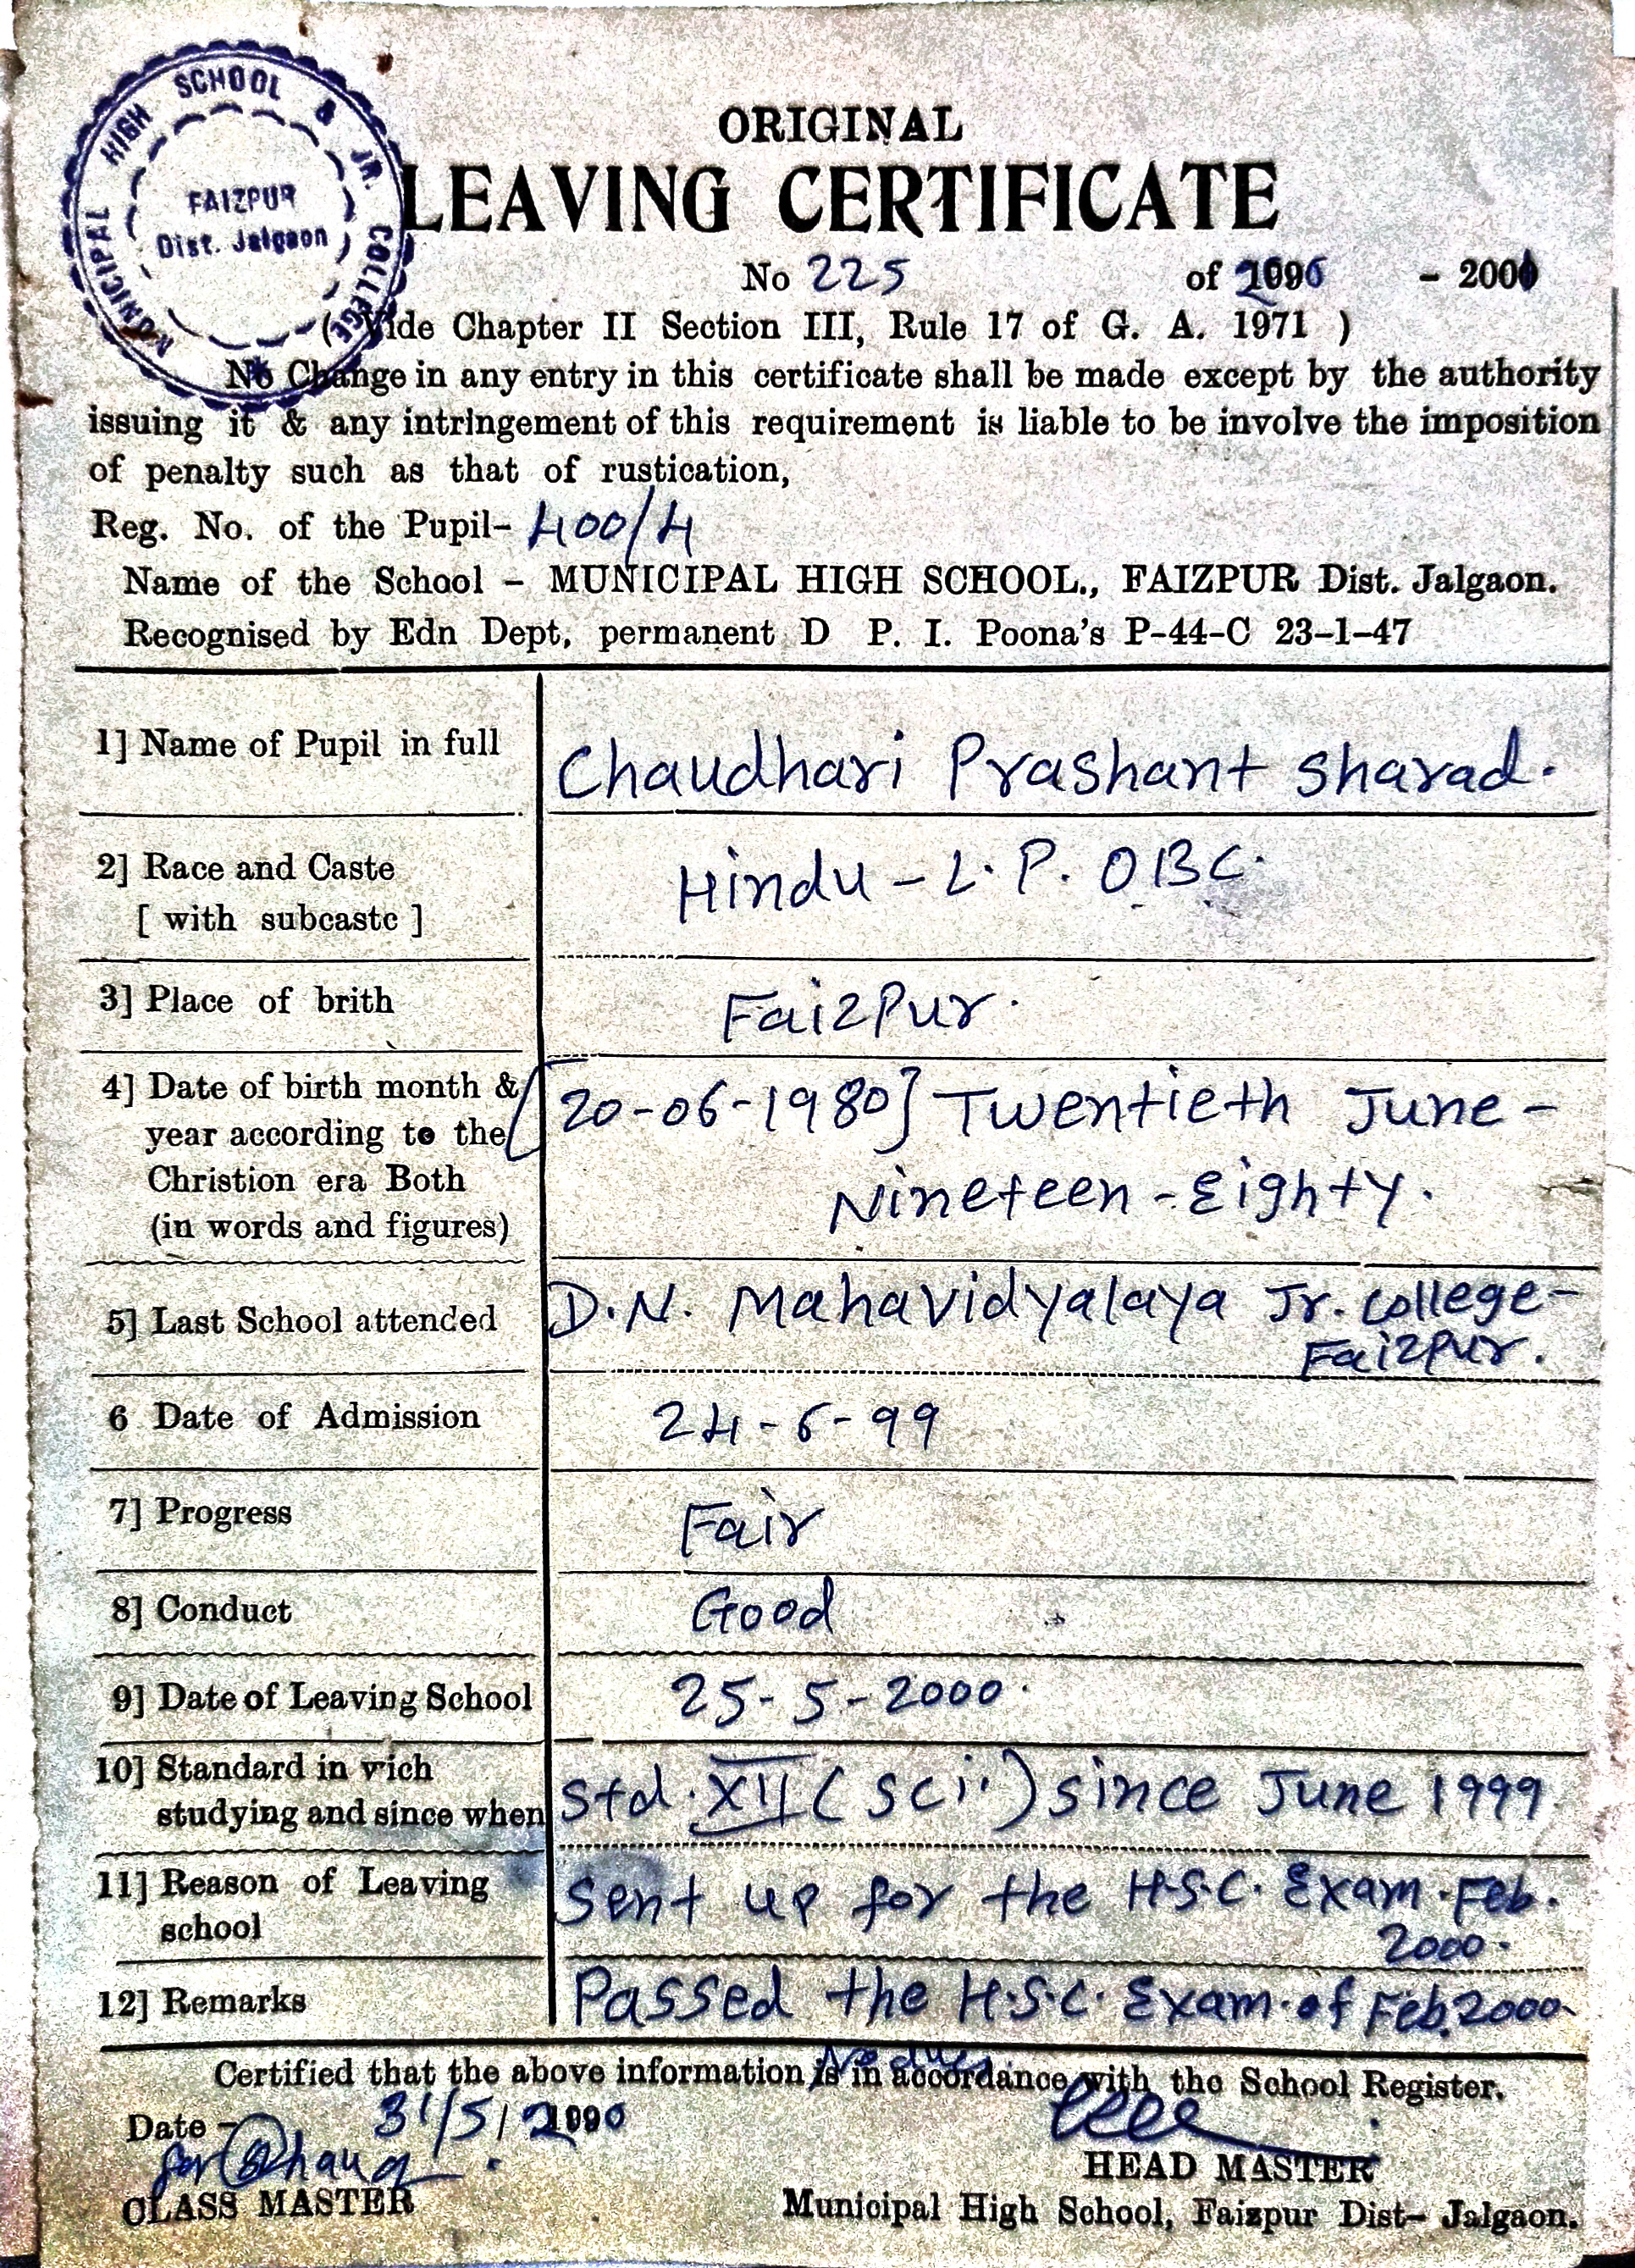 MUNICIPAL HIGH SCHOOL & JR. COLLEGE
FAIZPUR
Dist. Jalgaon
ORIGINAL
LEAVING CERTIFICATE
No 225 of - 2000
( Vide Chapter II Section III, Rule 17 of G. A. 1971 )
No Change in any entry in this certificate shall be made except by the authority
issuing it & any intringement of this requirement is liable to be involve the imposition
of penalty such as that of rustication,
Reg. No. of the Pupil- 400/4
Name of the School - MUNICIPAL HIGH SCHOOL., FAIZPUR Dist. Jalgaon.
Recognised by Edn Dept, permanent D P. I. Poona's P-44-C 23-1-47
1] Name of Pupil in full Chaudhari Prashant Sharad.
2] Race and Caste Hindu - L. P. OBC.
[ with subcaste ]
3] Place of brith Faizpur.
4] Date of birth month & [20-06-1980] Twentieth June -
year according to the
Christion era Both Nineteen - Eighty.
(in words and figures)
5] Last School attended D.N. Mahavidyalaya Jr. College -
Faizpur.
6 Date of Admission 24-6-99
7] Progress Fair
8] Conduct Good
9] Date of Leaving School 25-5-2000.
10] Standard in vich
studying and since when Std. XII (Sci.) since June 1999.
11] Reason of Leaving Sent up for the H.S.C. Exam. Feb.
school 2000.
12] Remarks Passed the H.S.C. Exam. of Feb. 2000.
No dues
Certified that the above information is in accordance with the School Register.
Date - 31/5/2000
CLASS MASTER HEAD MASTER
Municipal High School, Faizpur Dist- Jalgaon.